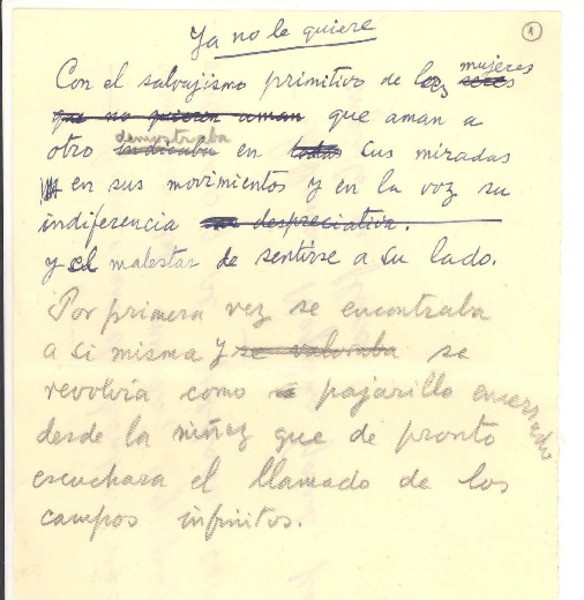 Ya no le quiere
1
Con el salvajismo primitivo de las mujeres seres
que no quieren aman que aman a
otro demostraba indicaba en todas sus miradas
en sus movimientos y en la voz su
indiferencia despreciativa.
y el malestar de sentirse a su lado.
Por primera vez se encontraba
a si misma y se valoraba se
revolvía como pajarillo encerrado
desde la niñez que de pronto
escuchara el llamado de los
campos infinitos.